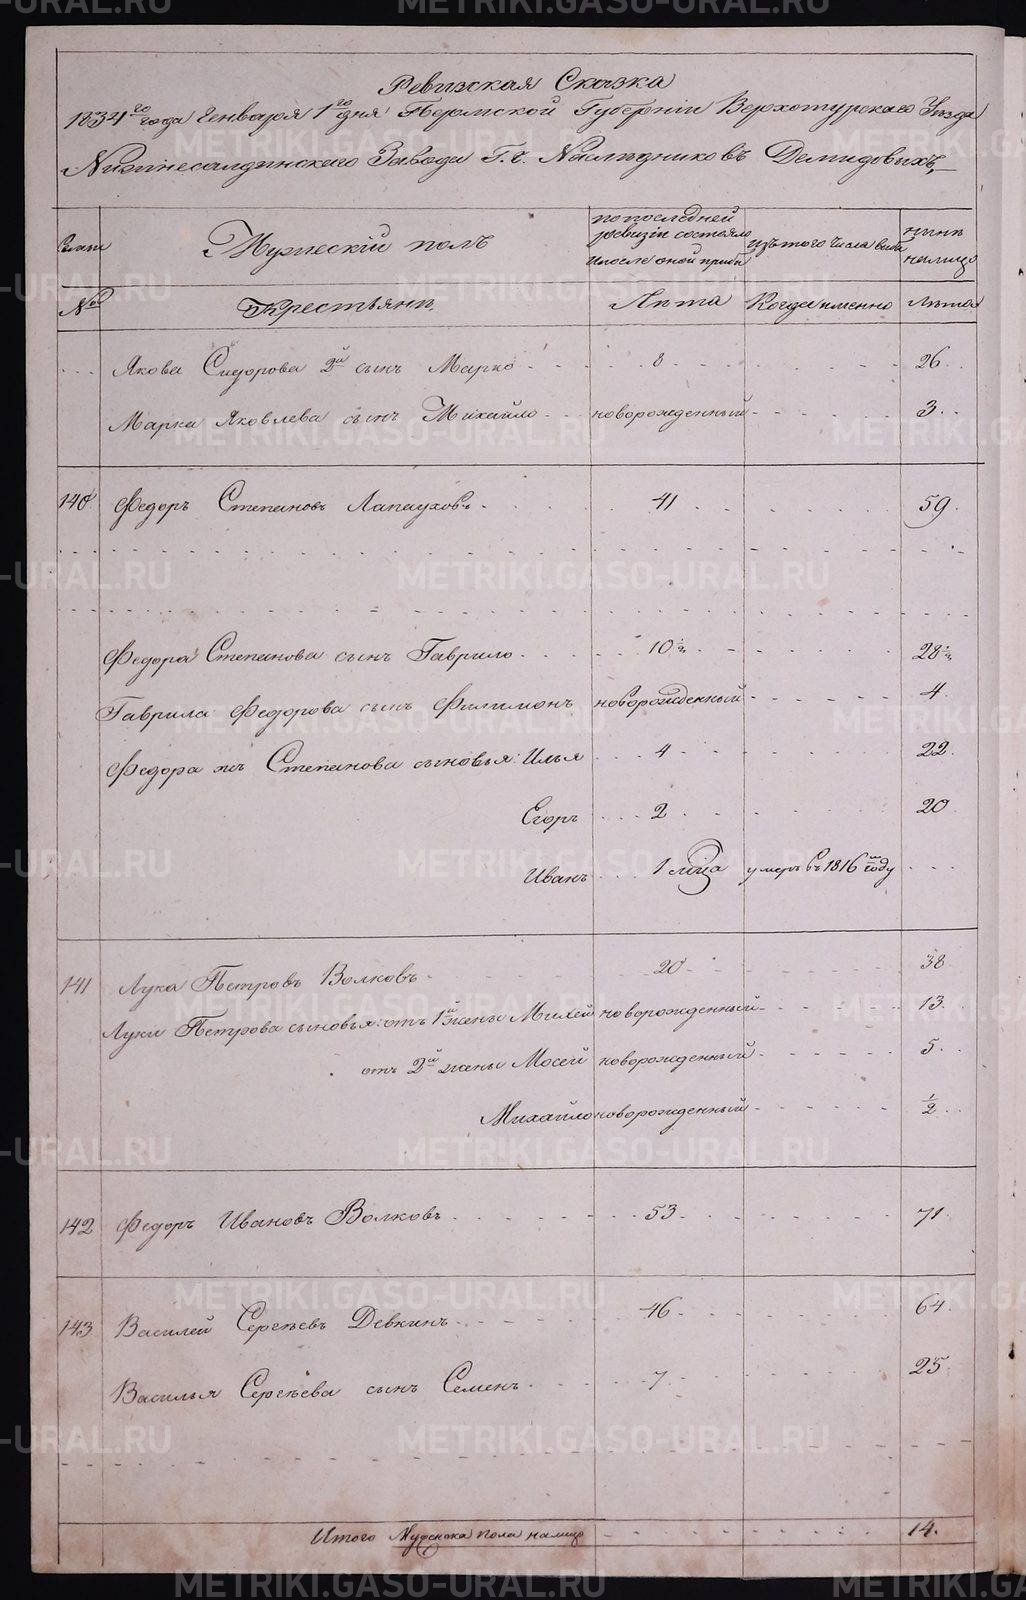 Ревизская Сказка
1834го года Генваря 1го дня Пермской Губернiи Верхотурскаго Уѣзда
Нижнесалдинскаго Завода Г.г. Наслѣдниковъ Демидовыхъ,
Мужескiй полъ
по последней ревизiи состояло и после оной прибы
изъ того числа выбы
нынѣ на лицо
№
Крестьяне,
Лѣта
Когда именно
Лѣта
Якова Сидорова 2й сынъ Марко 8 26
Марка Яковлева сынъ Михайло новорожденный 3
140 Федоръ Степановъ Лапауховъ 41 59.
Федора Степанова сынъ Гаврило 10½ 28½
Гаврила Федорова сынъ Филимонъ новорожденный 4
Федора жъ Степанова сыновья: Илья 4 22
Егоръ 2 20
Иванъ 1 умеръ въ 1816м году
141 Лука Петровъ Волковъ 20 38
Луки Петрова сыновья: отъ 1й жены Михей новорожденный 13
отъ 2й жены Мосей новорожденный 5
Михайло новорожденный ½
142 Федоръ Ивановъ Волковъ 53 71
143 Василей Сергѣевъ Девкинъ 46 64
Василья Сергѣева сынъ Семенъ 7 25
Итого Мужеска пола налицо 14.
METRIKI.GASO-URAL.RU